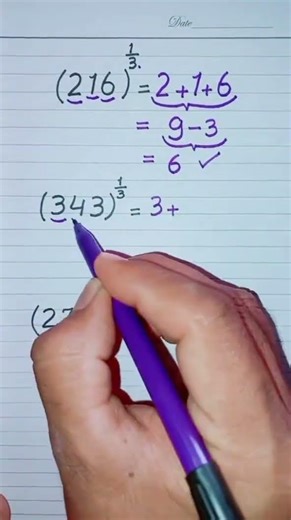 Date
(216)^(1/3.) = 2+1+6
= 9-3
= 6 ✓
(343)^(1/3) = 3+
(2